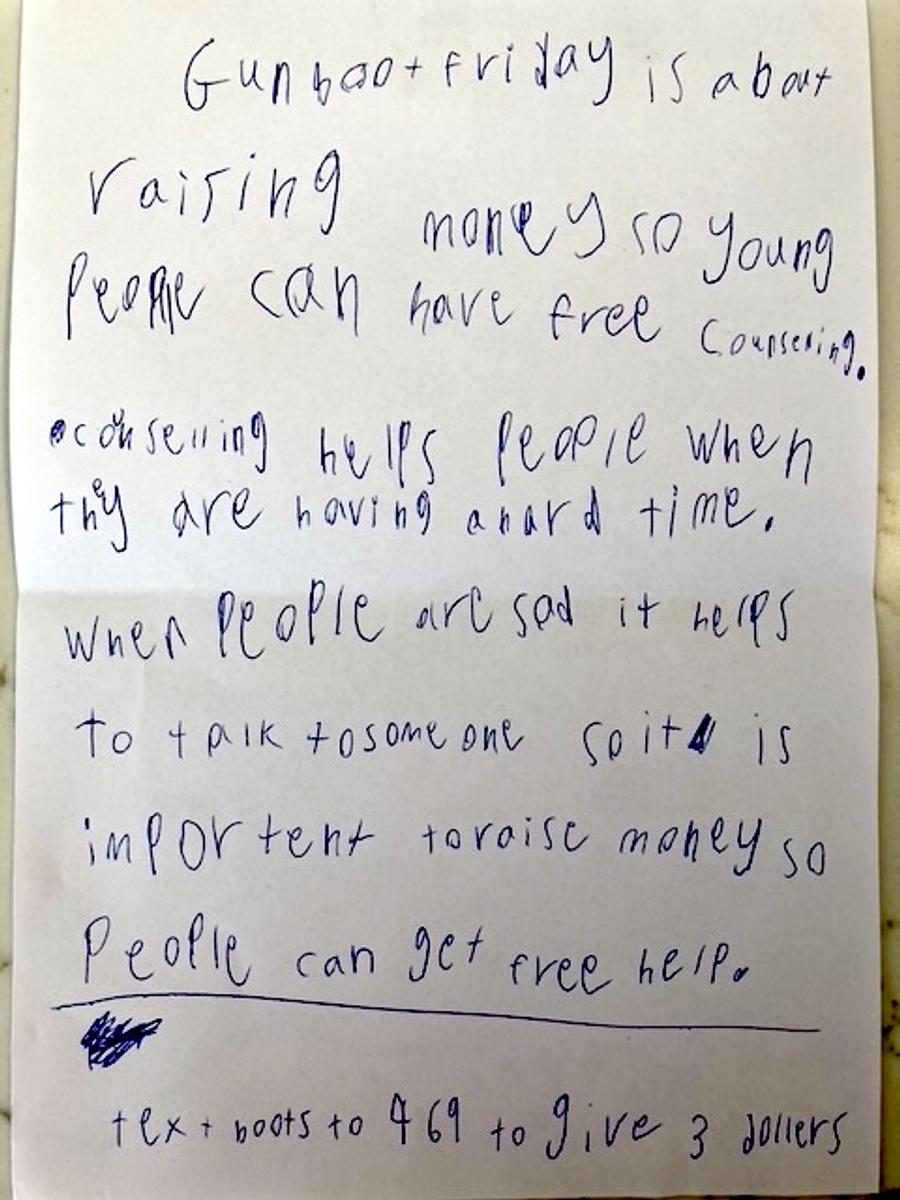 Gunboot friday is about
raising money so young
People can have free Counsering.
conselling helps people when
they are having a hard time.
when people are sad it helps
to talk to someone so it is
importent to raise money so
People can get free help.
text boots to 469 to give 3 dollers